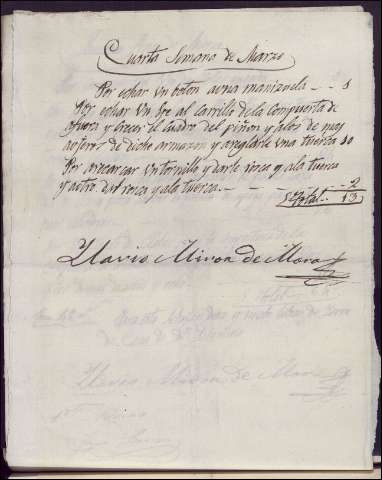 Cuarta Semana de Marzo
Por echar un boton auna manizuela - - 1
Por echar un Eje al Carrillo dela Compuerta de
afuera y hacer el cuadro del piñon y alos de may
de dicho armazon y arreglarle una tuerca 10
Por un tornillo y darle rosca y ala tuerca
y aotro dar rosca y ala tuerca - - - 2
Total 13
Miron de Mora